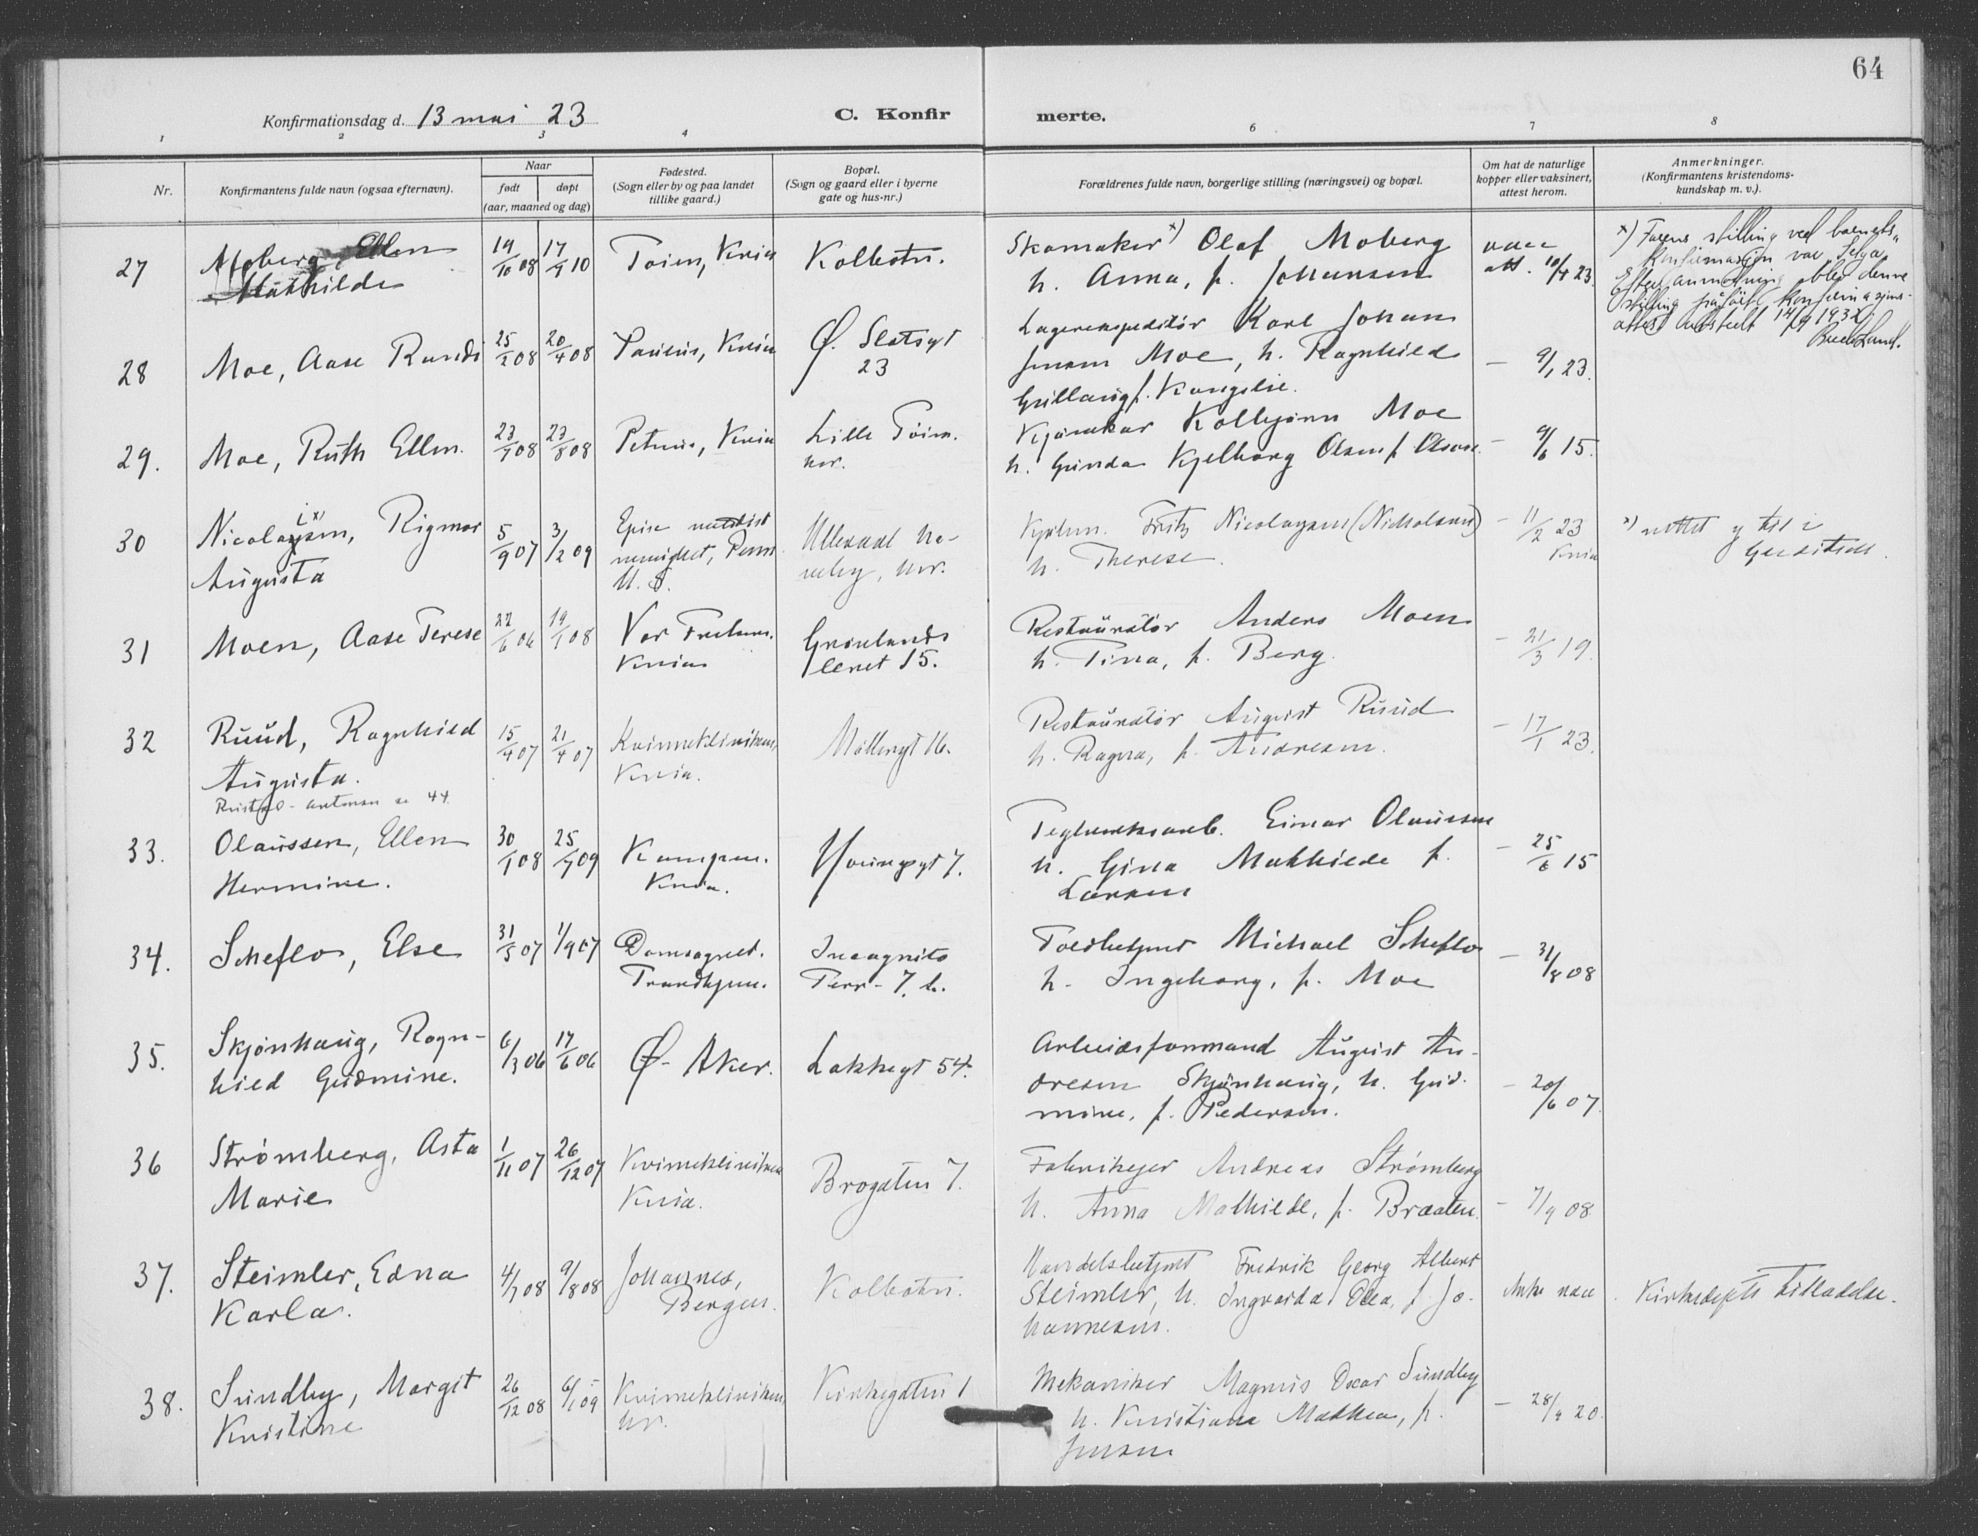 64
Konfirmationsdag d. 13 mai 23
C. Konfirmerte.
1 2 3 4 6 7 8
Nr.
Konfirmantens fulde navn (ogsaa efternavn).
Naar
født døpt
(aar, maaned og dag)
Fødested.
(Sogn eller by og paa landet
tillike gaard.)
Bopæl.
(Sogn og gaard eller i byerne
gate og hus-nr.)
Forældrenes fulde navn, borgerlige stilling (næringsvei) og bopæl.
Om hat de naturlige
kopper eller vaksinert,
attest herom.
Anmerkninger.
(Konfirmantens kristendoms-
kundskap m. v.).
27 Moberg, Ellen
Mathilde
19/10 08 17/9 10
Tøien, Kria
Kolbotn.
Skomaker x) Olaf Moberg
h. Anna, f. Johansen
vacc
att. 10/4 23.
x) Farens stilling ved barnets
Konfirmasjon var
Efter anmodning blev denne
stilling påført konfirmasjons-
attest utstedt 14/9 1932.
28 Moe, Aase Randi
25/2 08 20/4 08
Paulus, Kria
Ø. Slotsgt
23
Lagerekspeditør Karl Johan
Jensen Moe, h. Ragnhild
f. Kongslie.
– 9/1 23.
29. Moe, Ruth Ellen.
23/7 08 23/8 08
Petrus, Kria
Lille Tøien.
hr.
Kolbjørn Moe
h. Gunda Kjelborg Olsen f. Olsen.
– 9/6 15.
30 Nicolaysen, Rigmor
Augusta
5/9 07 3/2 09
Episc. metodist
menighet, Penn.
U. S.
Ullevaal Ha-
veby, hr.
Fritz Nicolaysen (Nicholsen)
h. Therese.
– 11/2 23
Kria
x) rettet
31 Moen, Aase Terese
22/6 06 19/1 08
Vor Frelsers.
Kria
Grønlands
leret 15.
Restauratør Anders Moen
h. Tina, f. Berg.
– 21/3 19.
32 Ruud, Ragnhild
Augusta.
15/4 07 21/4 07
Kvinneklinikken,
Kria.
Møllergt 16.
Restauratør August Ruud
h. Ragna, f. Andresen.
– 17/1 23.
se 44.
33. Olaussen, Ellen
Hermine.
30/1 08 25/7 09
Kampen.
Kria.
7.
Teglverksarb. Einar Olaussen
h. Gina Mathilde f.
Larsen
– 25/6 15
34. Scheflo, Else
31/5 07 1/9 07
Domsognet.
Trondhjem.
Incognito
Terr- 7. b.
Toldbetjent Michael Scheflo
h. Ingeborg, f. Moe
– 31/8 08
35. Skjønhaug, Ragn-
hild Gudmine.
6/3 06 17/6 06
Ø- Aker.
Lakkegt 54.
Arbeidsformand August An-
dresen Skjønhaug, h. Gud-
mine, f. Pedersen.
– 20/6 07.
36 Strømberg, Asta
Marie
1/11 07 26/12 07
Kvinneklinikken
Kria.
Brogaten 7.
Fabrikeier Andreas Strømberg
h. Anna Mathilde, f. Braaten.
– 7/9 08
37. Steimler, Edna
Karla.
4/7 08 9/8 08
Johannes,
Bergen.
Kolbotn.
Handelsbetjent Fredrik Georg Albert
Steimler, h. Ingvarda Olea, f. Jo-
hannesen.
Ikke vacc
Kirkedepts tilladelse.
38. Sundby, Margit
Kristine
26/12 08 6/1 09
Kvinneklinikken,
hr.
Kirkegaten 1
Mekaniker Magnus Oscar Sundby
h. Kristiane Mathea, f.
Jensen
– 28/4 20.